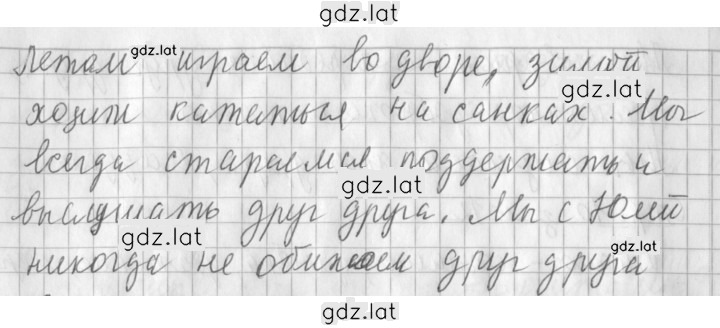 gdz.lat
gdz.lat
летом играем во дворе, зимой
gdz.lat
ходим кататься на санках. Мы
всегда стараемся поддержать и
gdz.lat
выслушать друг друга. Мы с Юлей
gdz.lat
gdz.lat
никогда не обижаем друг друга
gdz.lat